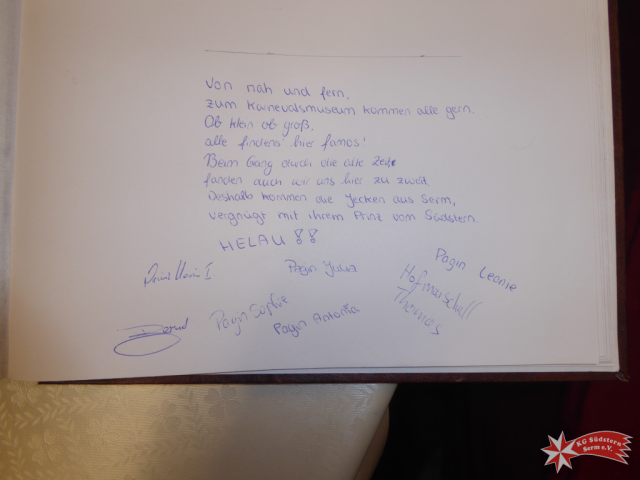 Von nah und fern,
zum Karnevalsmuseum kommen alle gern.
Ob klein ob groß,
alle finden's hier famos!
Beim Gang durch die alte Zeit,
fanden auch wir uns hier zu zweit.
Deshalb kommen die Jecken aus Serm,
vergnügt mit ihrem Prinz vom Südstern.
HELAU !!
Pagin Leonie
Pagin Julia
Prinz I
Hofmarschall
Thomas
Pagin Sophie
Pagin Antonia
KG Südstern
Serm e.V.